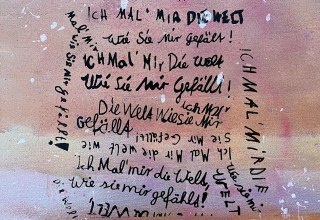 ICH MAL' MIR DIE WELT
Wie Sie Mir gefällt!
ICH MAL' Mir Die Welt
Wie Sie Mir Gefällt!
Die Welt Wie Sie Mir
ich Mal
gefällt
Sie Mir Gefällt
Ich Mal Mir die welt wie
Ich Mal' mir die Welt,
Wie sie mir gefällt!
WELT
ICH MAL' MIR DIE
WELT
wie sie mir
Mal' Mir
wie Sie Mir gefällt!